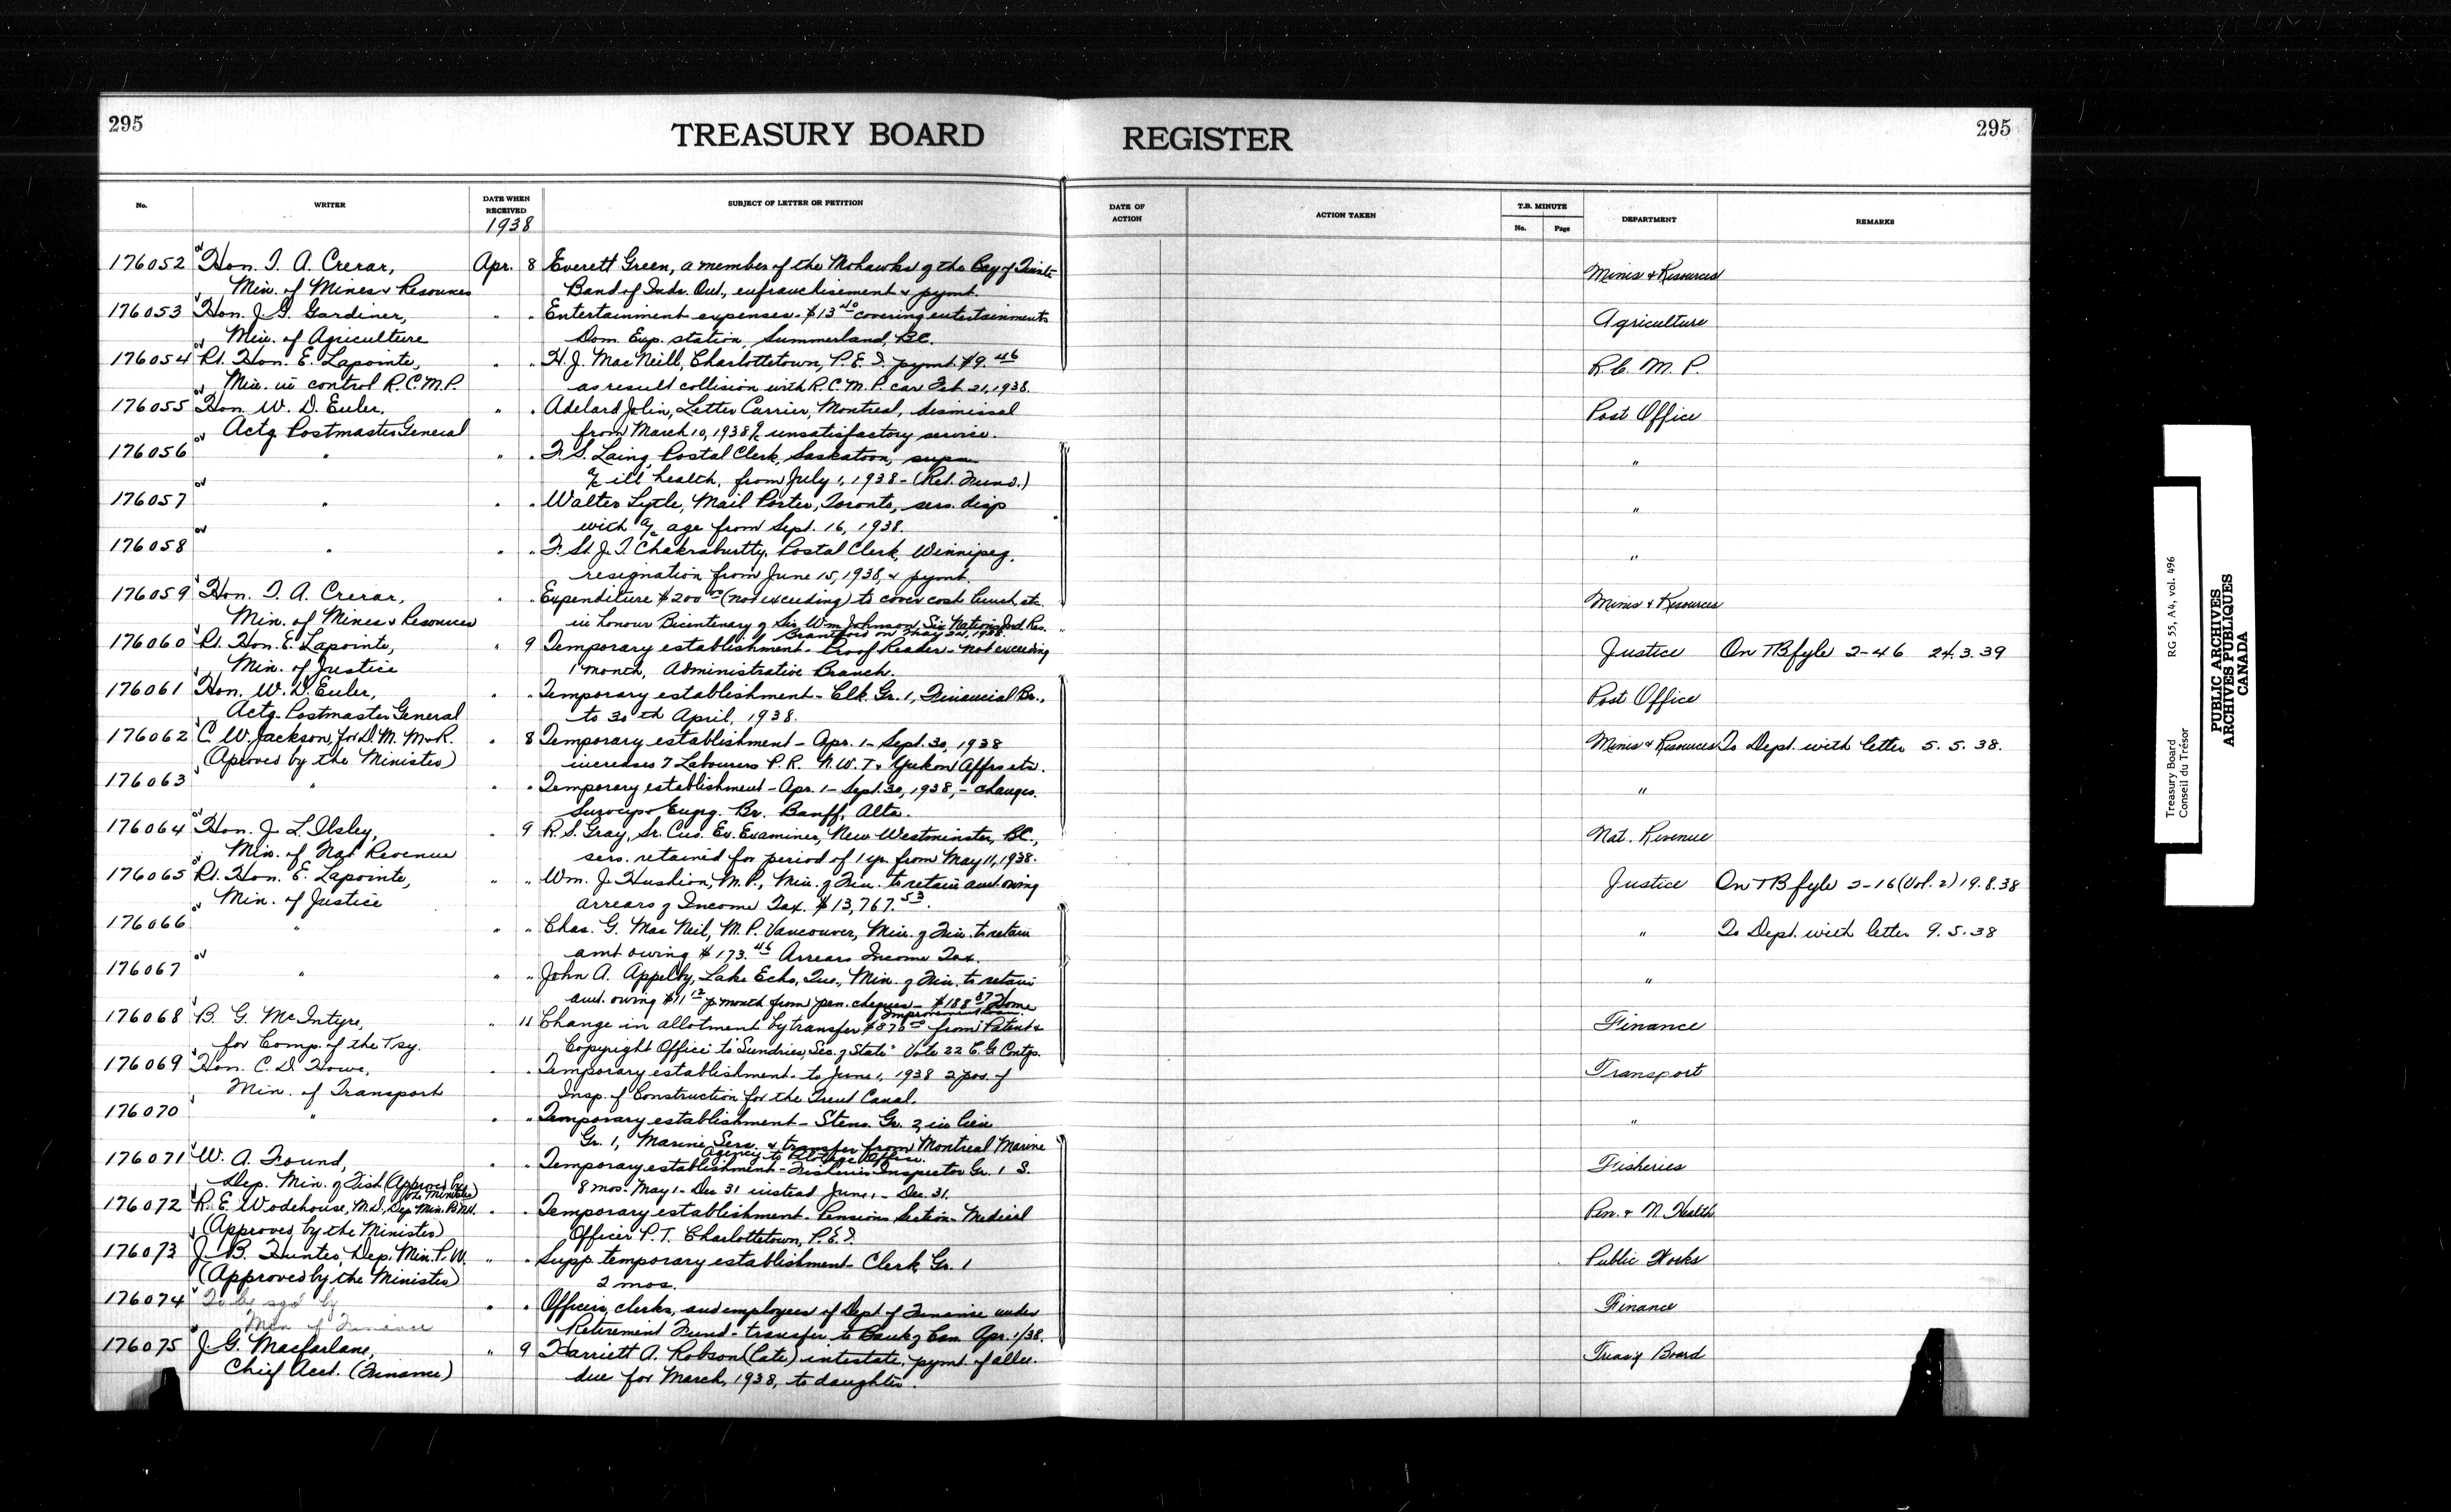 295
TREASURY BOARD REGISTER
295
No. WRITER DATE WHEN RECEIVED SUBJECT OF LETTER OR PETITION DATE OF ACTION ACTION TAKEN T.B. MINUTE No. Page DEPARTMENT REMARKS
1938
176052 Hon. T. A. Crerar, Apr. 8 Everett Green, a member of the Mohawks of the Bay of Quinte Mines & Resources
Min. of Mines & Resources Band of Inds. Ont., enfranchisement & pymt.
176053 Hon. J. G. Gardiner, " " Entertainment expenses - $13.40 covering entertainments Agriculture
Min. of Agriculture Dom. Exp. station, Summerland, B.C.
176054 Rt. Hon. E. Lapointe, " " H. J. MacNeill, Charlottetown, P.E.I. pymt. $9.46 R.C.M.P.
Min. in control R.C.M.P. as result collision with R.C.M.P. car Feb. 21, 1938.
176055 Hon. W. D. Euler, " " Adelard Jolin, Letter Carrier, Montreal, dismissal Post Office
Actg. Postmaster General from March 10, 1938 a/c unsatisfactory service.
176056 " " " F. S. Laing, Postal Clerk, Saskatoon, supn "
a/c ill health, from July 1, 1938 - (Ret. Fund.)
176057 " " " Walter Lytle, Mail Porter, Toronto, sers. disp "
with a/c age from Sept. 16, 1938.
176058 " " " F. St. J. T. Chakraburtty, Postal Clerk, Winnipeg, "
resignation from June 15, 1938, & pymt.
176059 Hon. T. A. Crerar, " Expenditure $200.00 (not exceeding) to cover cost lunch etc. Mines & Resources
Min. of Mines & Resources in honour Bicentenary of Sir Wm Johnson, Six Nations Ind. Res.
Brantford on May 24, 1938.
176060 Rt. Hon. E. Lapointe, " 9 Temporary establishment - Proof Reader - not exceeding Justice On TB fyle 2-46 24.3.39
Min. of Justice 1 month, Administrative Branch.
176061 Hon. W. D. Euler, " Temporary establishment - Clk. Gr. 1, Financial Br., Post Office
Actg. Postmaster General to 30th April, 1938.
176062 C. W. Jackson, for D.M. M & R. " 8 Temporary establishment - Apr. 1 - Sept. 30, 1938 Mines & Resources To Dept. with letter 5.5.38.
(Aproved by the Minister) increases 7 Labourers P.R. N.W.T. & Yukon Affrs etc.
176063 " " " Temporary establishment - Apr. 1 - Sept. 30, 1938, - changes. "
Surveys & Engrg. Br. Banff, Alta.
176064 Hon. J. L. Ilsley, " 9 R. S. Gray, Sr. Cus. Ex. Examiner, New Westminster, B.C., Nat. Revenue
Min. of Nat Revenue sers. retained for period of 1 yr. from May 11, 1938.
176065 Rt. Hon. E. Lapointe, " " Wm. J. Hushion, M.P., Min. of Fin. to retain amt. owing Justice On TB fyle 2-16 (Vol. 2) 19.8.38
Min. of Justice arrears of Income Tax. $13,767.53.
176066 " " " Chas. G. MacNeil, M.P. Vancouver, Min. of Fin. to retain " To Dept. with letter 9.5.38
amt owing $173.46 Arrears Income Tax.
176067 " " " John A. Appelby, Lake Echo, Que., Min. of Fin. to retain "
amt. owing $11.12 p. month from pen. cheques - $188.87 Home
Improvement Loan.
176068 B. G. McIntyre, " 11 Change in allotment by transfer $870.00 from Patent & Finance
for Comp. of the Tsy. Copyright Office to "Sundries, Sec. of State" Vote 22 C. G. Contgs.
176069 Hon. C. D. Howe, " Temporary establishment - to June 1, 1938 2 pos. of Transport
Min. of Transport Insp. of Construction for the Trent Canal.
176070 " " " Temporary establishment - Steno. Gr. 2, in lieu "
Gr. 1, Marine Serv. & transfer from Montreal Marine
Agency to Pilotage Office.
176071 W. A. Found, " " Temporary establishment - Fisheries Inspector Gr. 1 S. Fisheries
Dep. Min. of Fish (Approved by the Minister) 8 mos. May 1 - Dec 31 instead June 1 - Dec. 31.
176072 R. E. Wodehouse, M.D., Dep Min. P.N.H. " " Temporary establishment - Pensions Section - Medical Pen. & N. Health
(Approved by the Minister) Officer P.T. Charlottetown, P.E.I.
176073 J. B. Hunter, Dep. Min. P.W. " " Supp. temporary establishment - Clerk Gr. 1 Public Works
(Approved by the Minister) 2 mos.
176074 To be sgd by " " Officers, clerks, and employees of Dept. of Finance under Finance
Min of Finance Retirement Fund - transfer to Bank of Can. Apr. 1/38.
176075 J. G. Macfarlane, " 9 Harriett A. Robson (late) intestate, pymt. of allce. Treas'y Board
Chief Acct. (Finance) due for March, 1938, to daughter.
Treasury Board RG 55, A4, vol. 496
Conseil du Trésor
PUBLIC ARCHIVES
ARCHIVES PUBLIQUES
CANADA